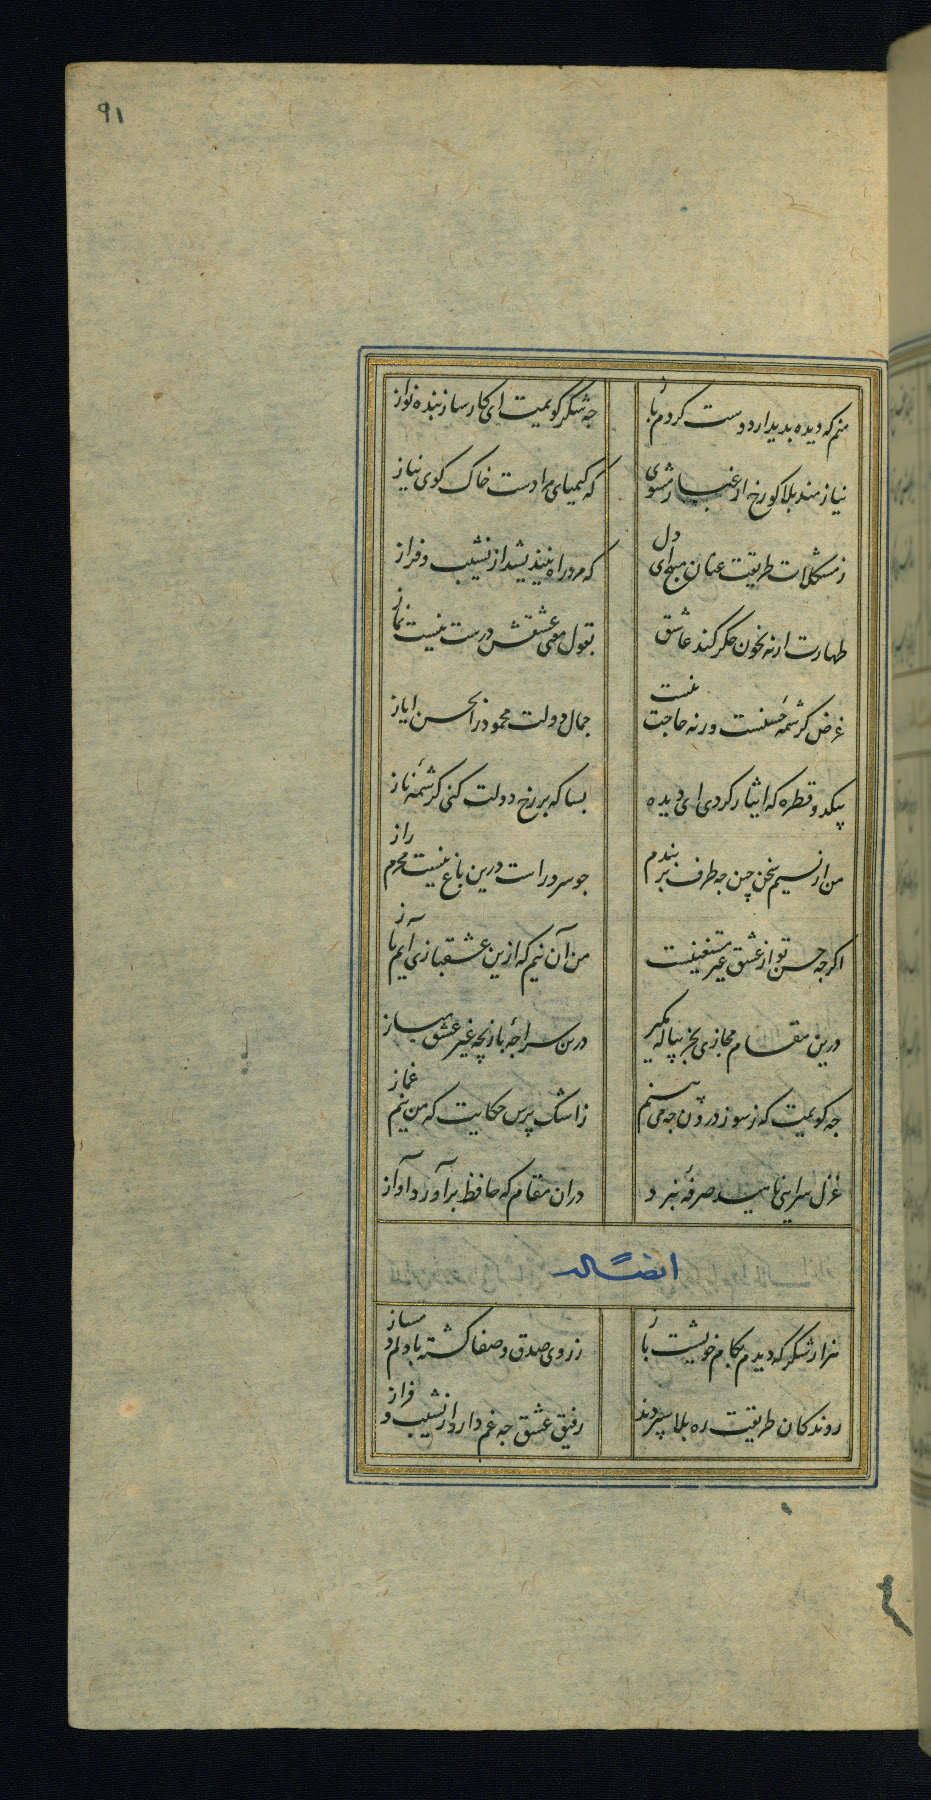 ۹۱
منم که دیده بدیدار دوست کردم باز
جه شکر گویمت ای کارساز بنده نواز
نیازمند بلا کو رخ از غبار مشوی
که کیمیای مرادست خاک کوی نیاز
ز مشکلات طریقت عنان مپیچ ای دل
که مرد راه نیندیشد از نشیب و فراز
طهارت ار نه بخون جکر کند عاشق
بقول مفتی عشقش درست نیست نماز
غرض کرشمهٔ حسنست ورنه حاجت نیست
جمال دولت محمود را بحسن ایاز
بیکدو قطره که ایثار کردی ای دیده
بسا که بر رخ دولت کنی کرشمهٔ ناز
من از نسیم سخن چین جه طرف بربندم
جو سرو راست درین باغ نیست محرم راز
اکرجه حسن تو از عشق غیر مستغنیست
من آن نیم که ازین عشقبازی آیم باز
درین مقام مجازی بجز پیاله مکیر
درین سراجهٔ بازیچه غیر عشق مباز
جه کویمت که ز سوز درون جه می بینم
ز اشک پرس حکایت که من نیم غماز
غزل سرایی ناهید صرفهٔ نبرد
دران مقام که حافظ برآورد آواز
ایضاً له
هزار شکر که دیدم بکام خویشت باز
ز روی صدق و صفا کشته با دلم دمساز
روندکان طریقت ره بلا سپرند
رفیق عشق جه غم دارد از نشیب و فراز